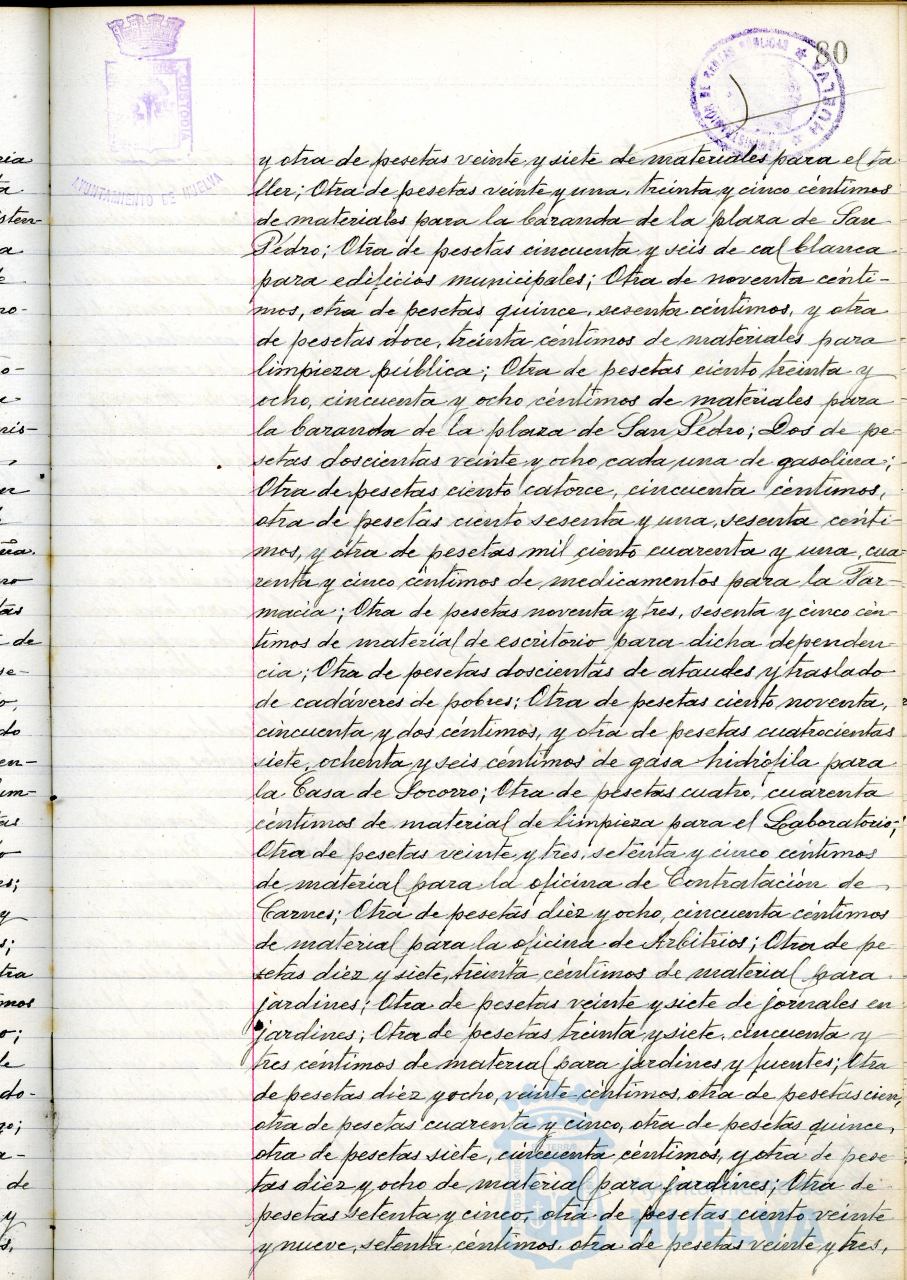 80
AYUNTAMIENTO DE HUELVA
CUSTODIA
HUELVA
y otra de pesetas veinte y siete de materiales para el ta-
ller; Otra de pesetas veinte y una, treinta y cinco céntimos
de materiales para la baranda de la plaza de San
Pedro; Otra de pesetas cincuenta y seis de cal blanca
para edificios municipales; Otra de noventa cénti-
mos, otra de pesetas quince, sesenta céntimos, y otra
de pesetas doce, treinta céntimos de materiales para
limpieza pública; Otra de pesetas ciento treinta y
ocho, cincuenta y ocho céntimos de materiales para
la baranda de la plaza de San Pedro; Dos de pe-
setas doscientas veinte y ocho cada una de gasolina;
Otra de pesetas ciento catorce, cincuenta céntimos,
otra de pesetas ciento sesenta y una, sesenta cénti-
mos, y otra de pesetas mil ciento cuarenta y una, cua-
renta y cinco céntimos de medicamentos para la Far-
macia; Otra de pesetas noventa y tres, sesenta y cinco cén-
timos de material de escritorio para dicha dependen-
cia; Otra de pesetas doscientas de ataudes y traslado
de cadáveres de pobres; Otra de pesetas ciento noventa,
cincuenta y dos céntimos, y otra de pesetas cuatrocientas
siete, ochenta y seis céntimos de gasa hidrófila para
la Casa de Socorro; Otra de pesetas cuatro, cuarenta
céntimos de material de limpieza para el Laboratorio;
Otra de pesetas veinte y tres, setenta y cinco céntimos
de material para la oficina de Contratación de
Carnes; Otra de pesetas diez y ocho, cincuenta céntimos
de material para la oficina de Arbitrios; Otra de pe-
setas diez y siete, treinta céntimos de material para
jardines; Otra de pesetas veinte y siete de jornales en
jardines; Otra de pesetas treinta y siete, cincuenta y
tres céntimos de material para jardines y fuentes; Otra
de pesetas diez y ocho, veinte céntimos, otra de pesetas cien,
otra de pesetas cuarenta y cinco, otra de pesetas quince,
otra de pesetas siete, cincuenta céntimos, y otra de pese-
tas diez y ocho de material para jardines; Otra de
pesetas setenta y cinco, otra de pesetas ciento veinte
y nueve, setenta céntimos, otra de pesetas veinte y tres,